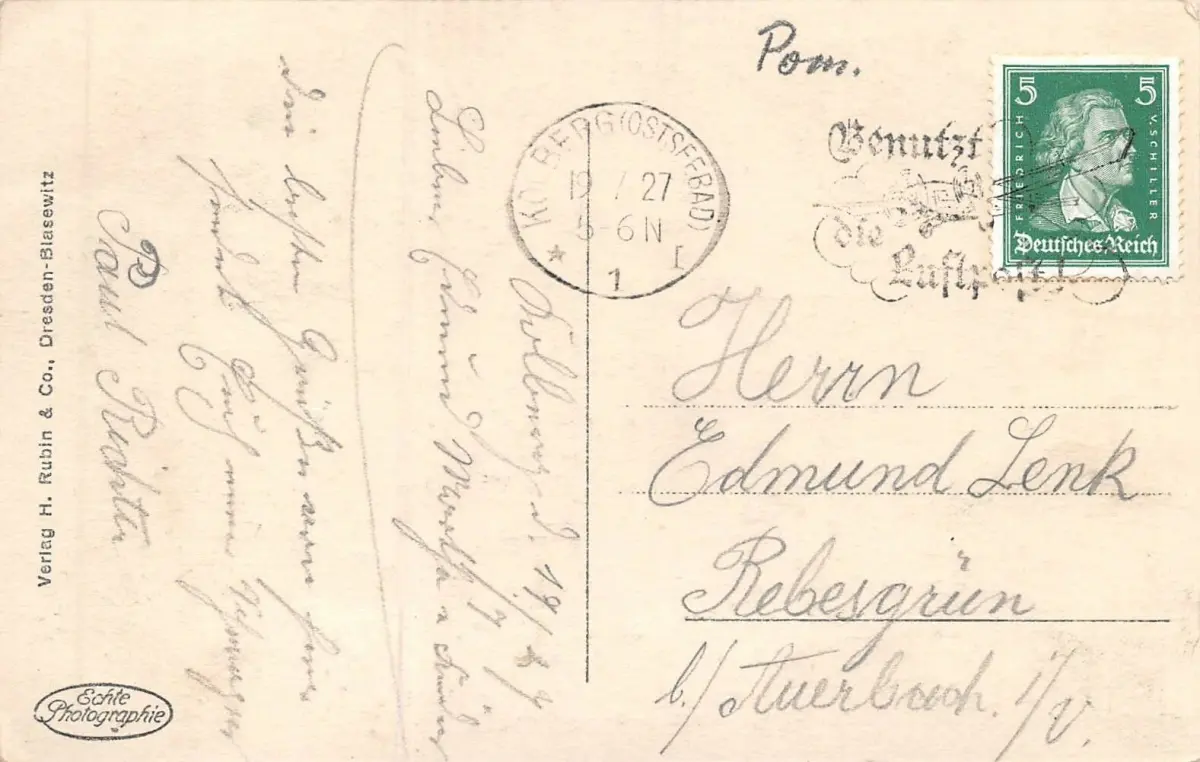 Pom.
KOLBERG (OSTSEEBAD)
19.7.27
5-6 N
* 1 I
Benutzt
die
Luftpost!
5 5
FRIEDRICH
V. SCHILLER
Deutsches Reich
Herrn
Edmund Lenk
Rebesgrün
b./ Auerbach. i/V.
Kolberg d. 19/7 27
Liebe
Martha u Kinder
Die besten Grüße von hier
sendet Euch
Paul Richter
Verlag H. Rubin & Co., Dresden-Blasewitz
Echte
Photographie